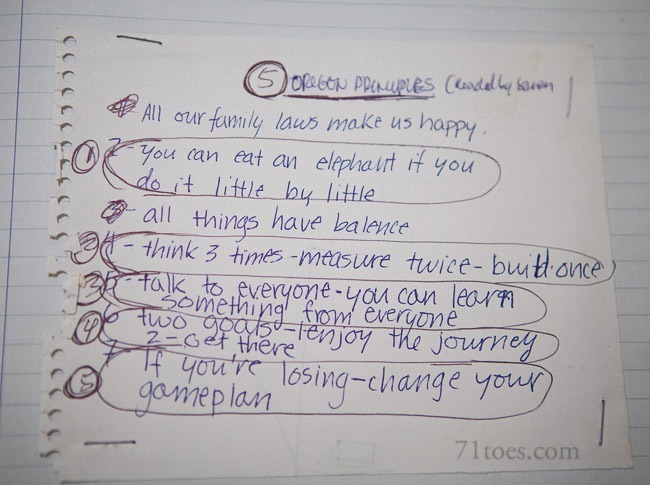 5 OREGON PRINCIPLES (Readed by
All our family laws make us happy.
1 2- you can eat an elephant if you
do it little by little
3- all things have balence
2 4- think 3 times - measure twice - build once
3 5- talk to everyone - you can learn
something from everyone
4 6 two goals - 1 enjoy the journey
2 - get there
5 7- If you're losing - change your
gameplan
71toes.com